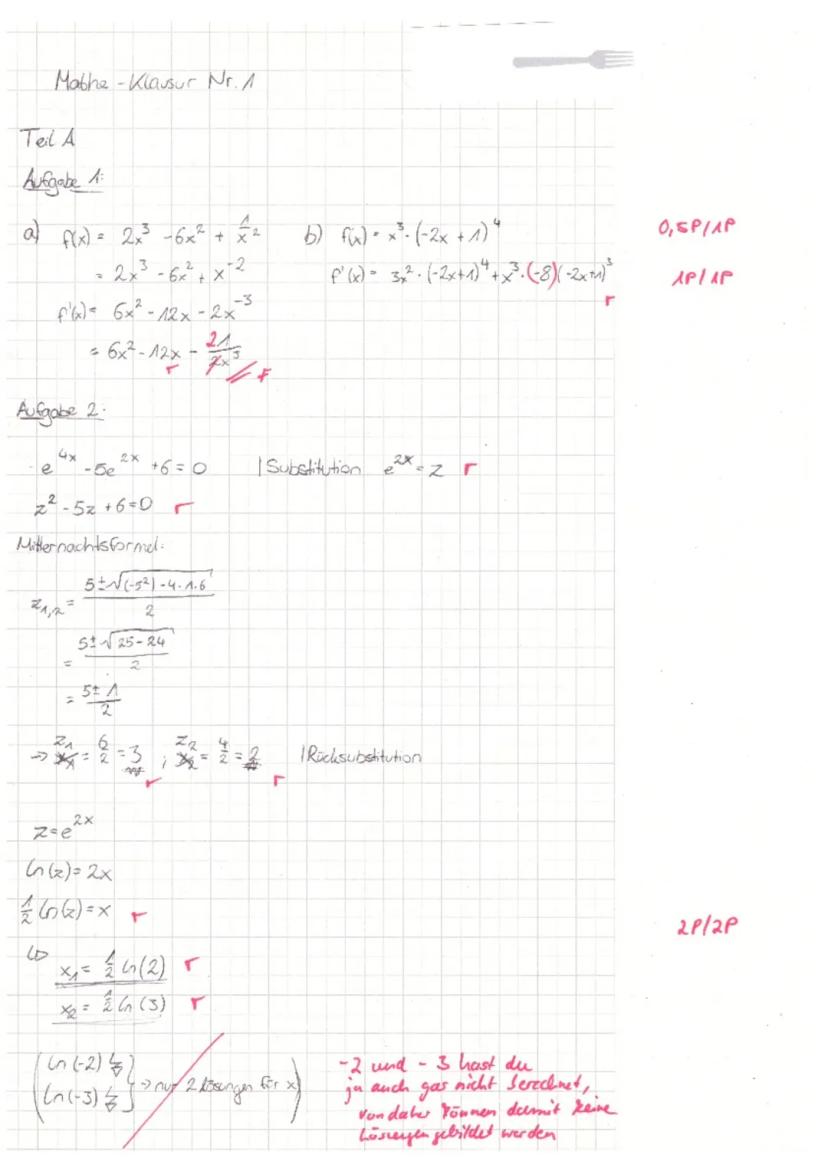 Mathe-Klausur Nr. 1
Teil A
Aufgabe 1:
a) f(x) = 2x³ - 6x² + 1/x² b) f(x) = x³ · (-2x + 1)⁴ 0,5P/1P
= 2x³ - 6x² + x⁻² f'(x) = 3x² · (-2x+1)⁴ + x³ · (-8)(-2x+1)³ 1P/1P
r
f'(x) = 6x² - 12x - 2x⁻³
= 6x² - 12x - 1/2x³ 2
r f
Aufgabe 2:
e⁴ˣ - 5e²ˣ + 6 = 0 | Substitution e²ˣ = z r
z² - 5z + 6 = 0 r
Mitternachtsformel:
z₁,₂ = (5 ± √((-5²) - 4 · 1 · 6))/2
= (5 ± √(25 - 24))/2
= (5 ± 1)/2
→ z₁ = 6/2 = 3 ; z₂ = 4/2 = 2 | Rücksubstitution
r r
z = e²ˣ
ln(z) = 2x
1/2 ln(z) = x r
2P/2P
↳ x₁ = 1/2 ln(2) r
x₂ = 1/2 ln(3) r
(ln(-2) ↯
ln(-3) ↯} → nur 2 Lösungen für x)
-2 und -3 hast du
ja auch gar nicht berechnet,
von daher können damit keine
Lösungen gebildet werden